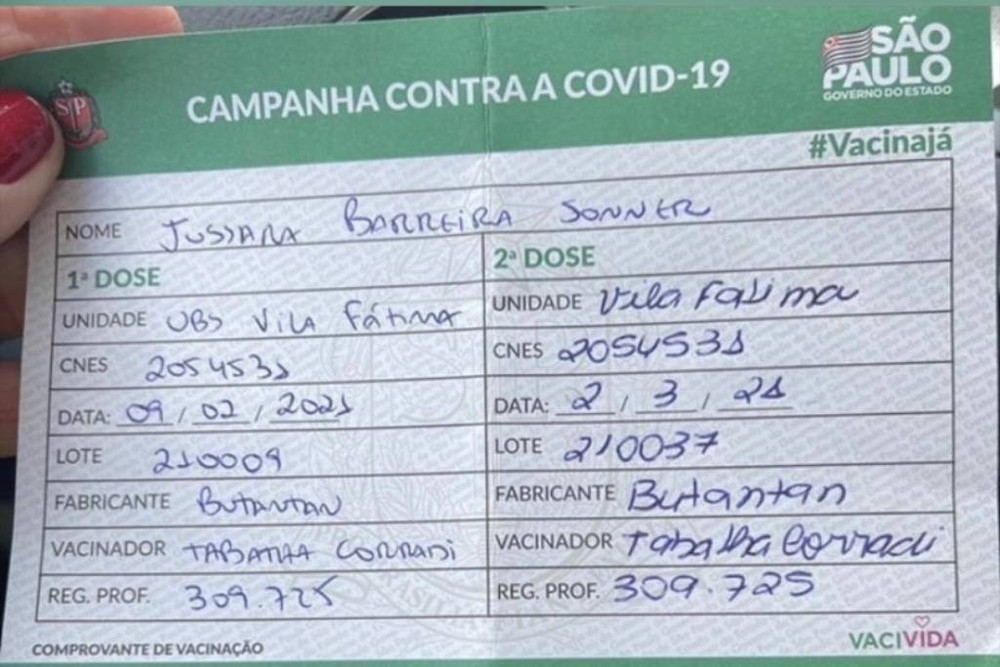 SP
CAMPANHA CONTRA A COVID-19
SÃO PAULO
GOVERNO DO ESTADO
#Vacinajá
NOME JUSSARA BARREIRA SONNER
1ª DOSE
UNIDADE UBS VILA FÁTIMA
CNES 2054531
DATA: 09/02/2021
LOTE 210009
FABRICANTE BUTANTAN
VACINADOR TABATHA CORRADI
REG. PROF. 309.725
2ª DOSE
UNIDADE Vila Fatima
CNES 2054531
DATA: 2/3/21
LOTE 210037
FABRICANTE Butantan
VACINADOR Tabatha Corradi
REG. PROF. 309.725
COMPROVANTE DE VACINAÇÃO
VACIVIDA